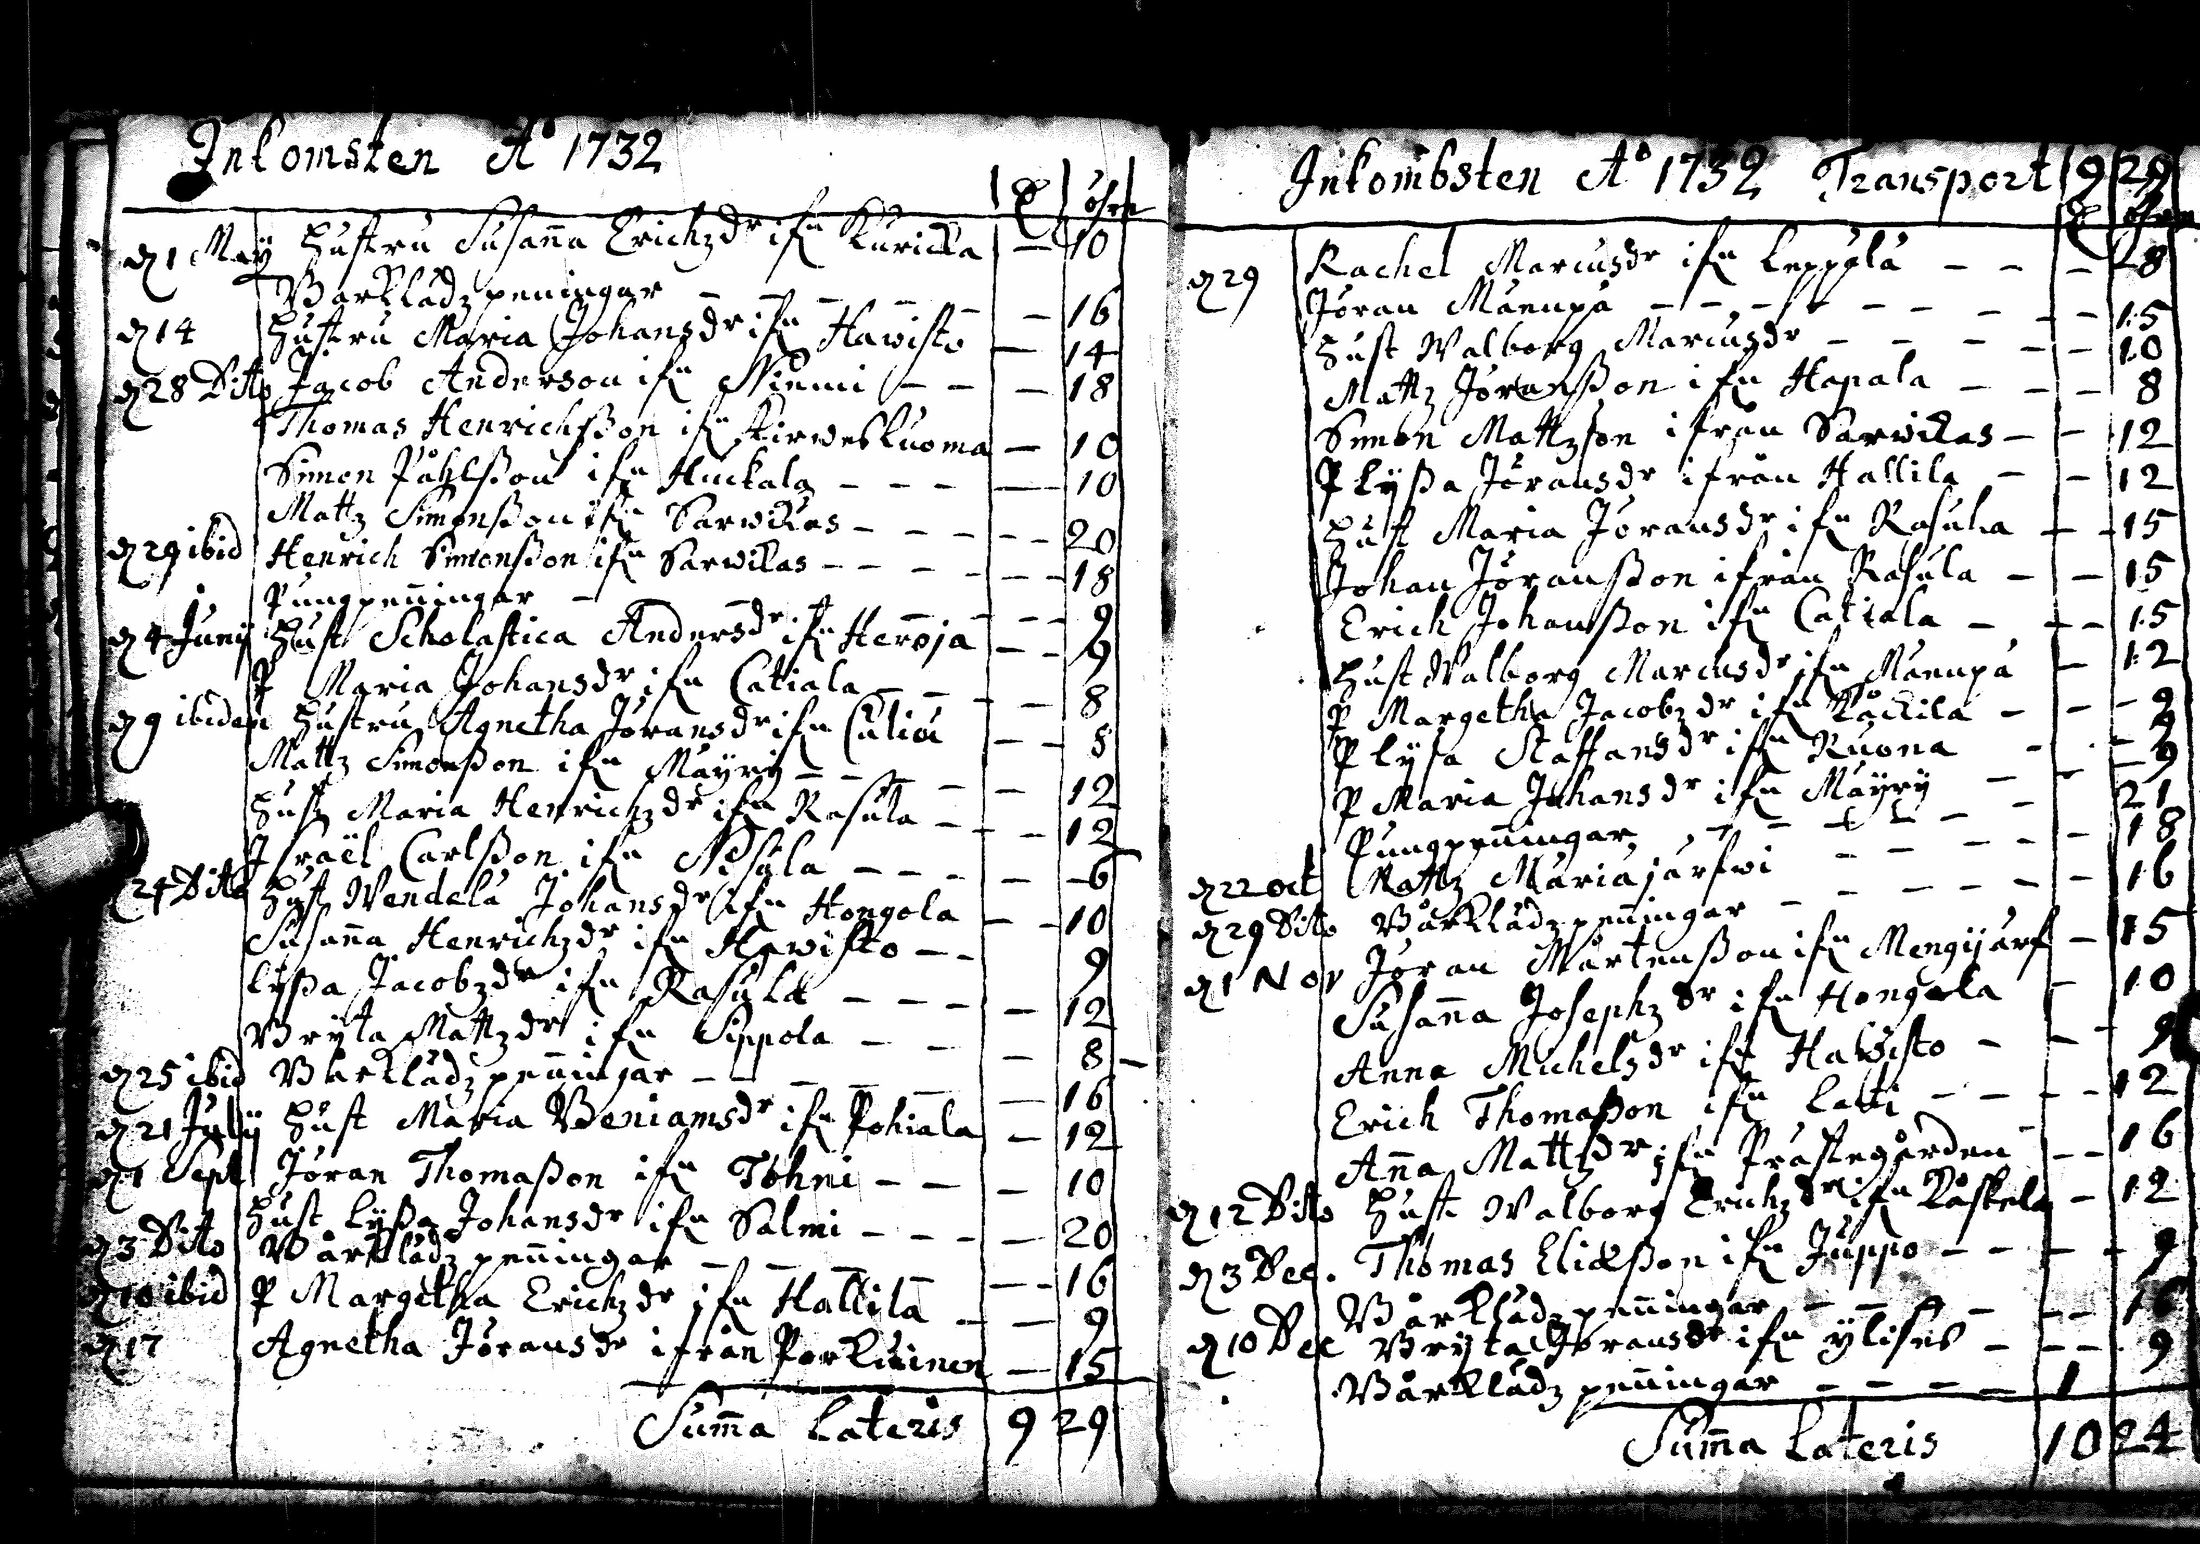 Inkomsten A° 1732
öhre
d 1 Maÿ Hustru Susanna Erichzdr ifn Kuricka — 10
Bårklädz peningar — — — 16
d 14 Hustru Maria Johansdr ifn Hawisto — 14
d 28 Dito Jacob Anderson ifn Niemi — — — 18
Thomas Henrichsßon ifn Kirweskuoma — 10
Simon Påhlßon ifn Huckala — — — 10
Mattz Simonßon ifn Sarwikas — — — 20
d 29 ibid Henrich Simonßon ifn Sarwikas — — — 18
Pungpenningar — — — 9
d 4 Junij Hust Scholastica Andersdr ifn Heroja — — 9
P Maria Johansdr ifn Catiala — — 8
d 9 ibidem Hustru Agnetha Jöransdr ifn — — 8
Mattz Simonßon ifn Mäyry — — — 12
Hust Maria Henrichzdr ifn Rasula — — 12
Israël Carlßon ifn Nisula — — — 6
24 Dito Hust Wendela Johansdr ifn Hongola — — 10
Susanna Henrichzdr ifn Hawisto — — 9
Lyßa Jacobzdr ifn Rasula — — — 12
Bryta Mattzdr ifn Sippola — — — 8
d 25 ibid Bårklädz penningar — — — 16
d 21 Julij Hust Maria Beniamsdr ifn Pohiala — 12
d 1 Sept Jöran Thomaßon ifn Töhni — — — 10
Hust Lyßa Johansdr ifn Salmi — — — 20
d 3 Dito Bårklädz penningar — — — 16
d 10 ibid P Margetha Erichzdr ifn Hallila — — 9
d 17 Agnetha Jöransdr ifrån Porkuinen — 15
Summa Lateris 9 29
Inkombsten A° 1732 Transport 9 29
öhre
d 29 Rachel Marcusdr ifn Leppälä — — — 8
Jöran Mäenpä — — — 15
Hust Walborg Marcusdr — — — 10
Mattz Jöranßon ifn Hapala — — — 8
Simon Mattzson ifrån Sarwikas — — 12
P Lyßa Jöransdr ifrån Hallila — — 12
Hust Maria Jöransdr ifn Rasula — — 15
Johan Jöranßon ifrån Rasula — — 15
Erich Johanßon ifn Catiala — — — 15
Hust Walborg Marcusdr ifn Mäenpä — 12
P Margetha Jacobzdr ifn Käckilä — — — 9
P Lysa Staffansdr ifn Ruona — — 9
P Maria Johansdr ifn Mäyry — — 9
Pungpenningar — — — 21
d 22 oct Mattz Mariajärfwi — — — 18
d 29 Dito Bårklädz penningar — — — 16
d 1 Nov Jöran Mårtenßon ifn Mengijärf — 15
Susanna Josephzdr ifn Hongola — 10
Anna Michelsdr ifn Hawisto — — 9
Erich Thomaßon ifn Latti — — — 12
Anna Mattzdr ifn Prästegården — — 16
d 12 Dito Hust Walborg Erichzdr ifn Käskelä — 12
d 3 Dec. Thomas Eliæßon ifn Juppo — — — 9
Bårklädz penningar — — — 16
d 10 Dec Bryta Jöransdr ifn Ylises — — — 9
Bårklädz penningar — — — 1
Summa Lateris 10 24